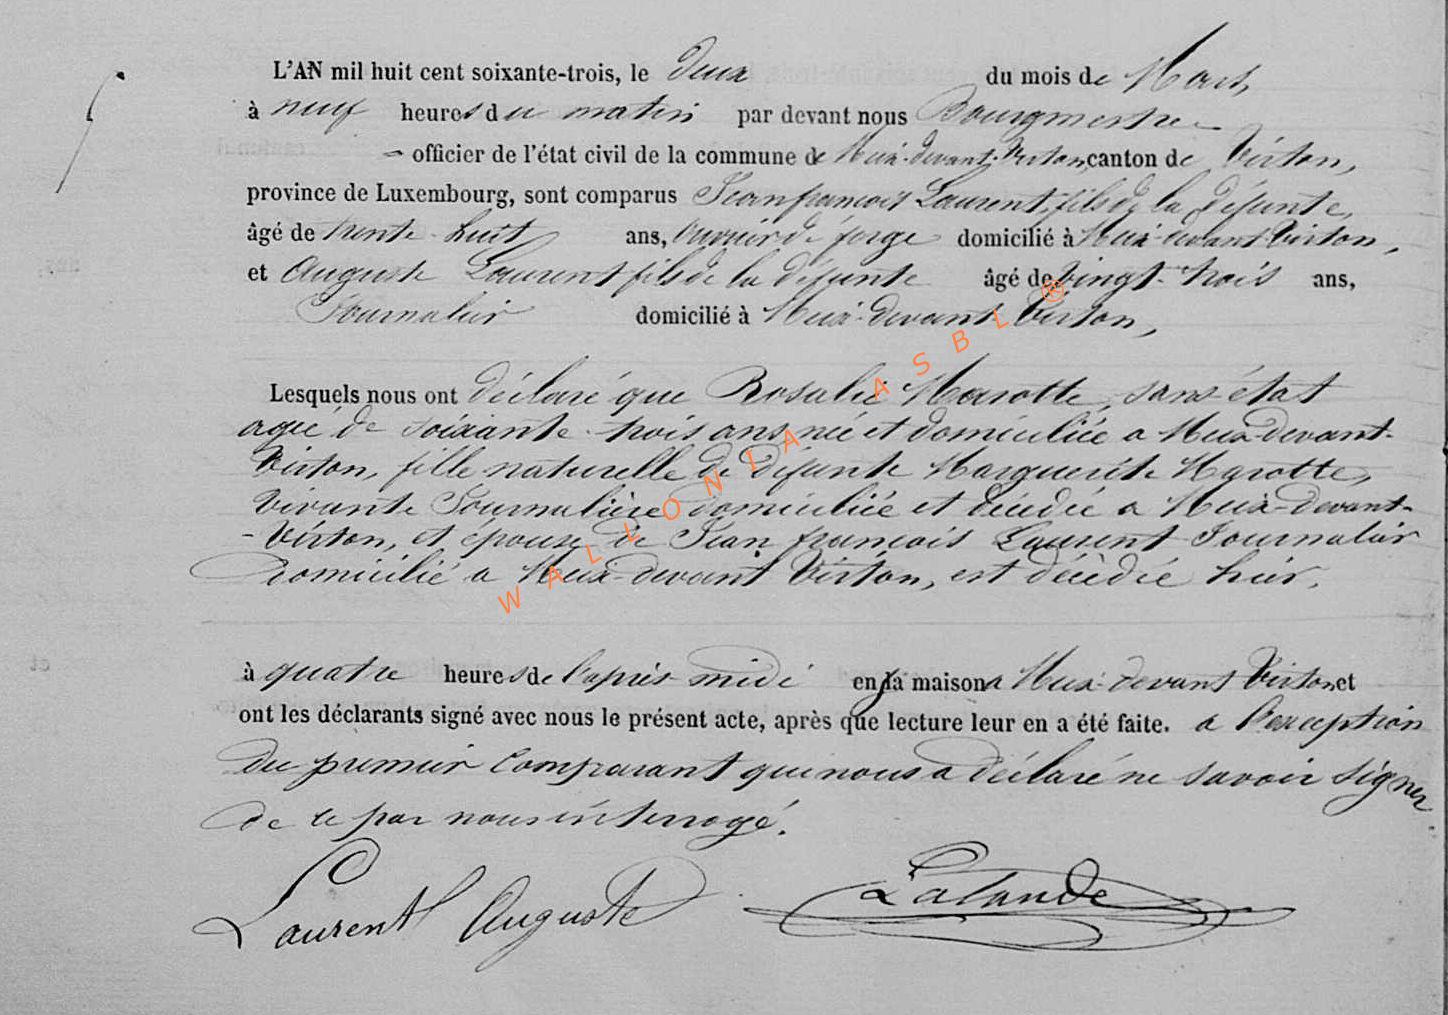 L'AN mil huit cent soixante-trois, le deux du mois de Mars,
à neuf heures du matin par devant nous Bourgmestre
officier de l'état civil de la commune de Meix-devant-Virton, canton de Virton,
province de Luxembourg, sont comparus Jean françois Laurent, fils de la défunte,
âgé de trente-huit ans, ouvrier de forge domicilié à Meix-devant Virton,
et Auguste Laurent fils de la défunte âgé de vingt-trois ans,
Journalier domicilié à Meix-devant Virton,
Lesquels nous ont déclaré que Rosalie Marotte, sans état
agée de soixante-trois ans née et domiciliée a Meix-devant-
Virton, fille naturelle de défunte Marguerite Marotte,
vivante Journalière domiciliée et décédée a Meix-devant-
-Virton, et épouse de Jean françois Laurent Journalier
domicilié a Meix-devant Virton, est décédée hier,
à quatre heures de l'après-midi en sa maison a Meix-devant Virton et
ont les déclarants signé avec nous le présent acte, après que lecture leur en a été faite. a l'exception
du premier comparant qui nous a déclaré ne savoir signer
de ce par nous interrogé.
Laurent Auguste Lalande
WALLONIA ASBL ®